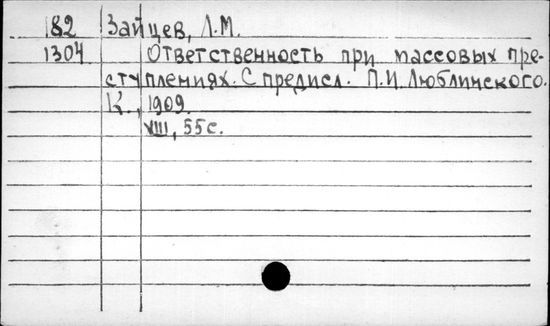 182 Зайцев, Л.М.
1304 Ответственность при массовых пре-
ступлениях. С предисл. П.И. Люблинского.
К., 1909.
XIII, 55 с.